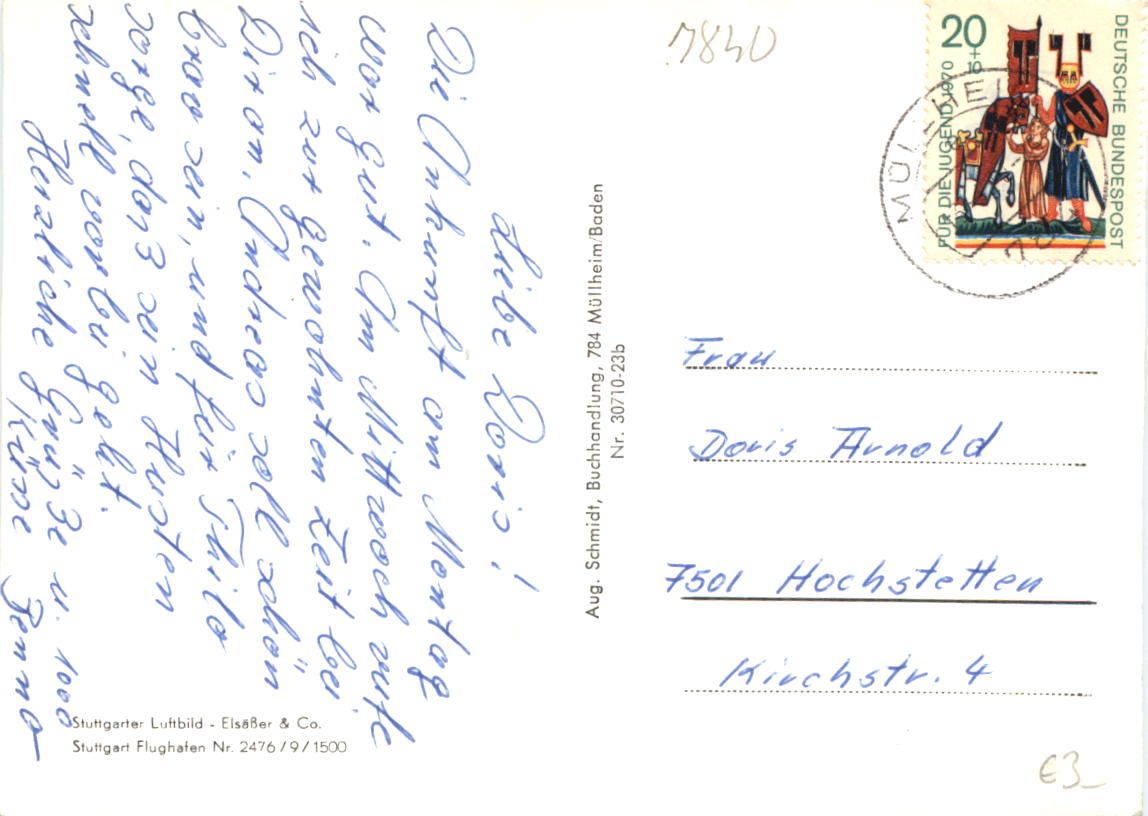 Liebe Doris!
Die Ankunft am Montag
war gut. Am Mittwoch rufe
ich zur gewohnten Zeit bei
Dir an. Andreas soll schön
brav sein, und für Thilo
sorge, daß sein Husten
schnell vorbei geht.
Herzliche Grüße u. 1000
Küsse Benno
Stuttgarter Luftbild - Elsäßer & Co.
Stuttgart Flughafen Nr. 2476/9/1500
Aug. Schmidt, Buchhandlung, 784 Müllheim/Baden
Nr. 30710-23b
7840
20
+
10
FÜR DIE JUGEND 1970
DEUTSCHE BUNDESPOST
MÜLLHEI
Frau
Doris Arnold
7501 Hochstetten
Kirchstr. 4
€3-